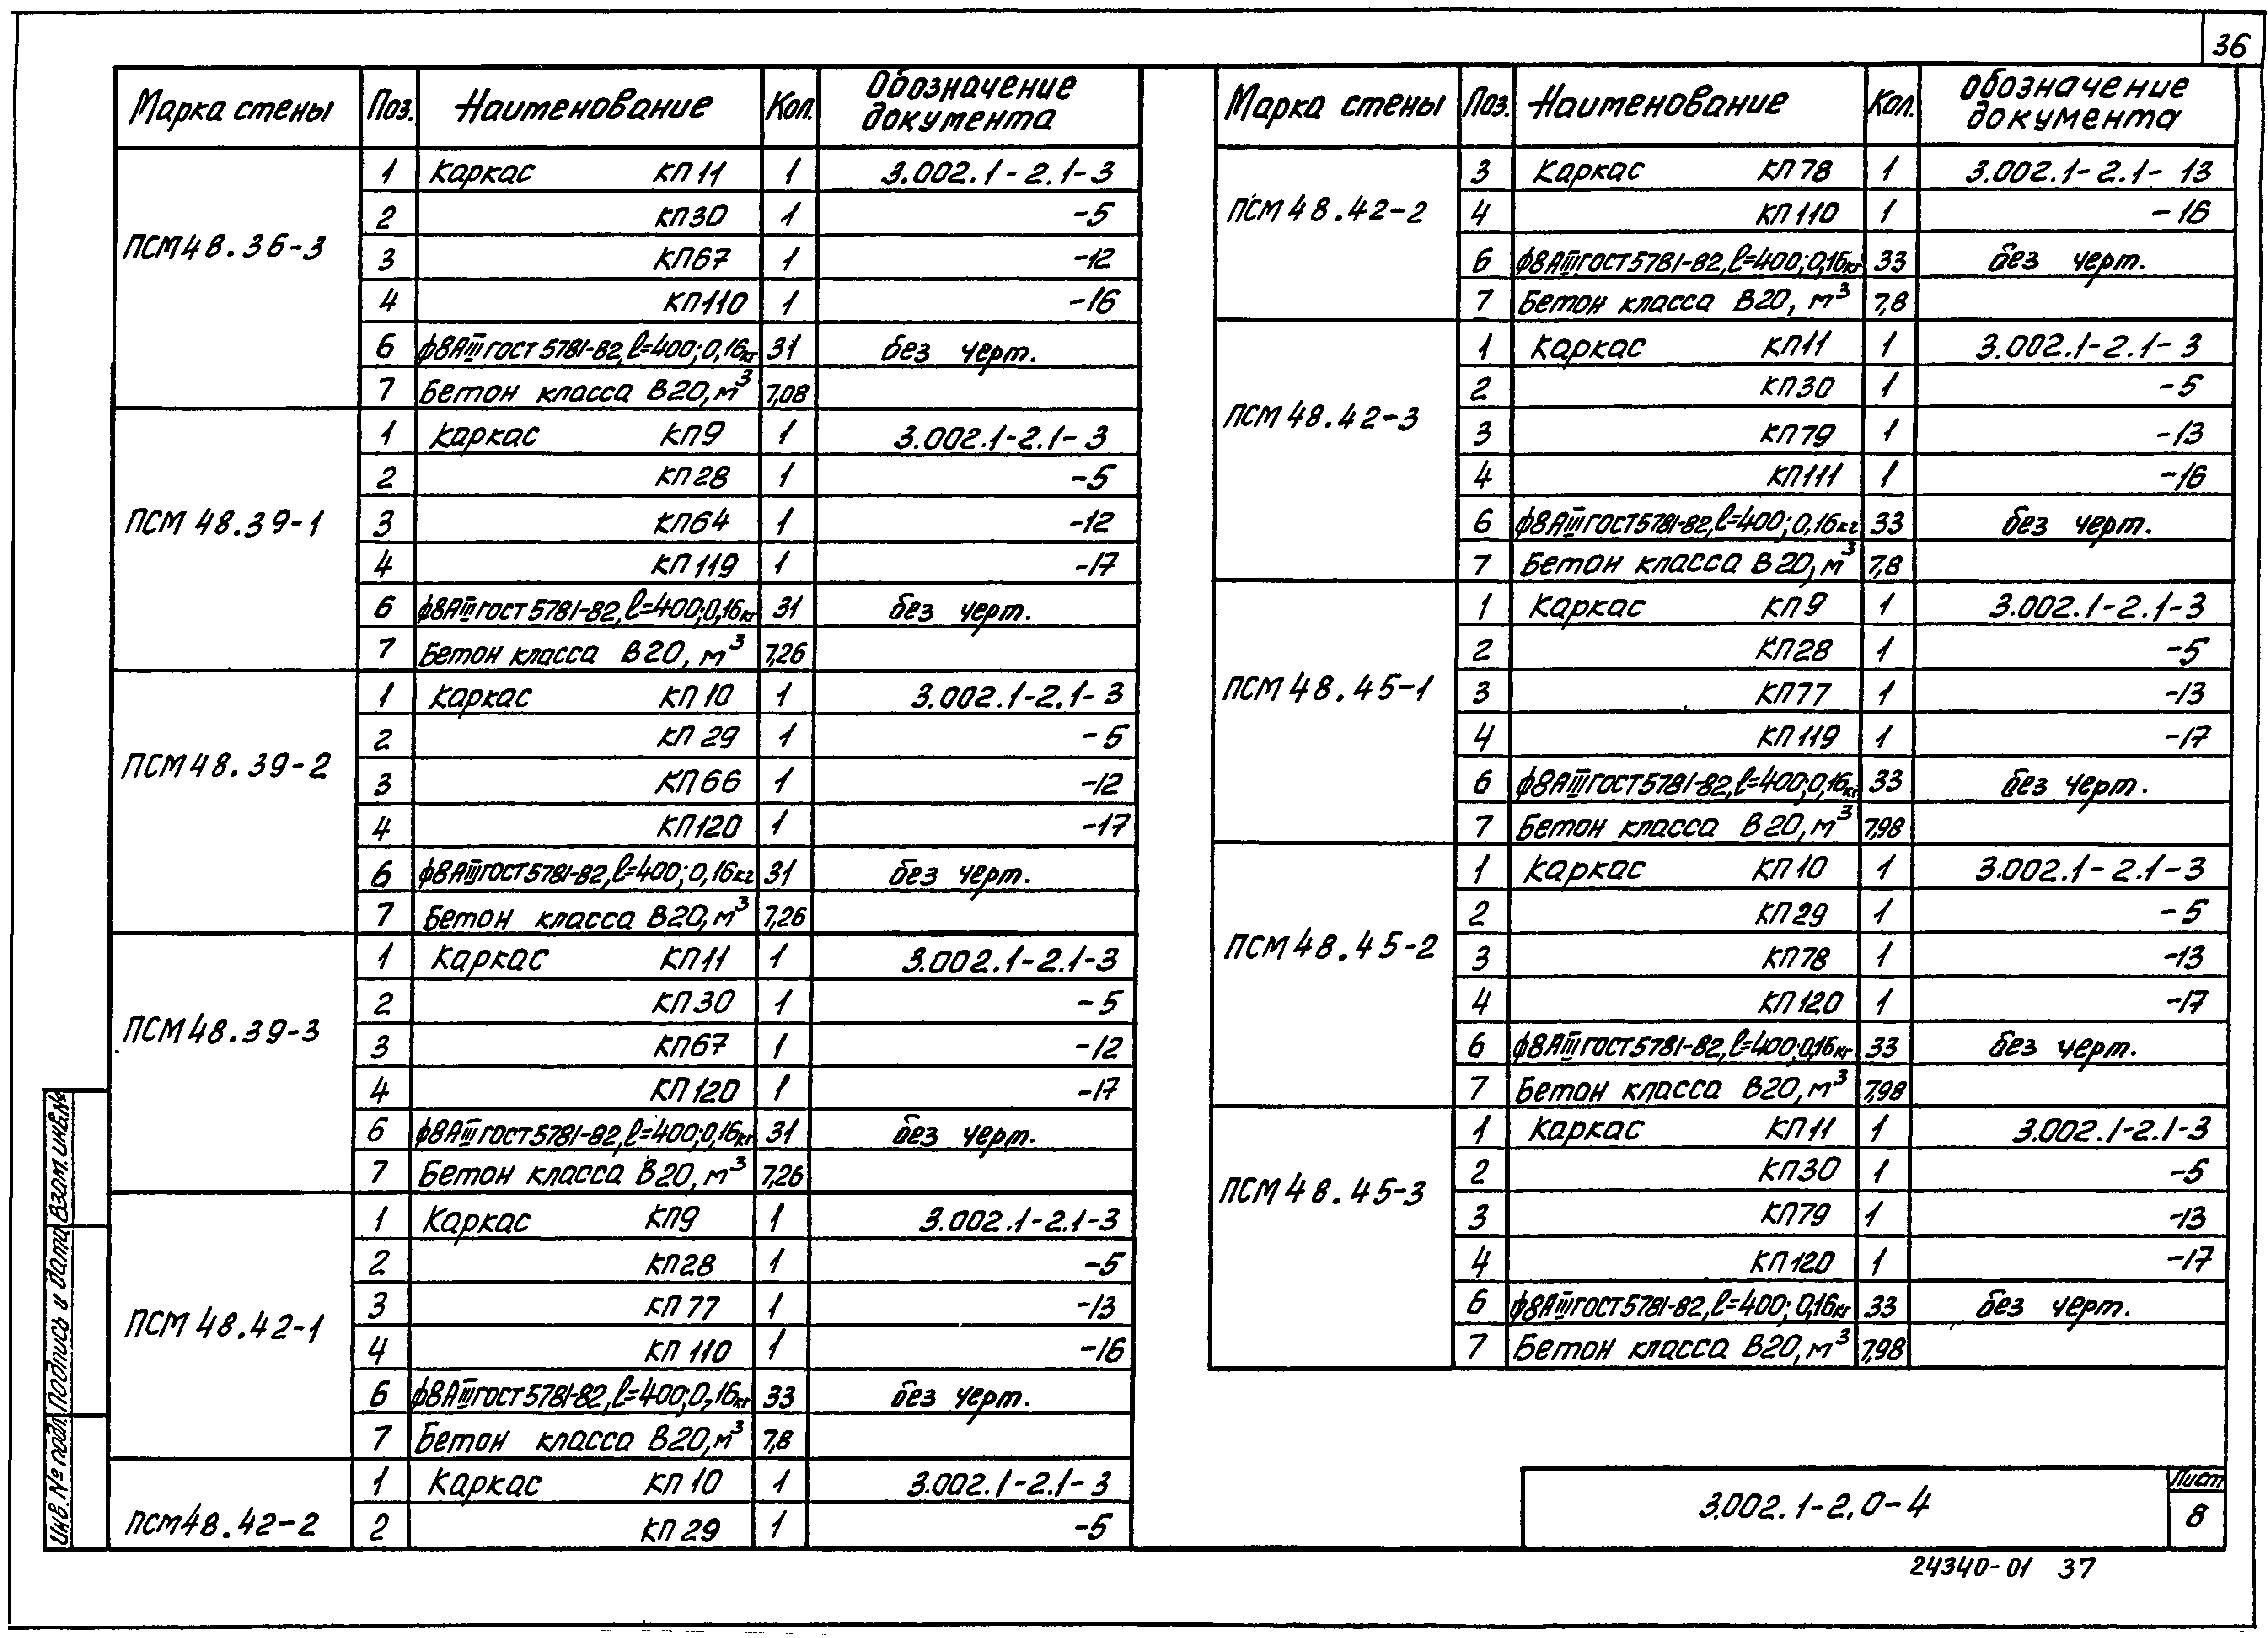 36
Марка стены Поз. Наименование Кол. Обозначение документа
ПСМ48.36-3
1 Каркас КП11 1 3.002.1-2.1-3
2 КП30 1 -5
3 КП67 1 -12
4 КП110 1 -16
6 ф8АIII ГОСТ 5781-82, ℓ=400; 0,16кг 31 без черт.
7 Бетон класса В20, м³ 7,08
ПСМ 48.39-1
1 Каркас КП9 1 3.002.1-2.1-3
2 КП28 1 -5
3 КП64 1 -12
4 КП119 1 -17
6 ф8АIII ГОСТ 5781-82, ℓ=400; 0,16кг 31 без черт.
7 Бетон класса В20, м³ 7,26
ПСМ48.39-2
1 Каркас КП10 1 3.002.1-2.1-3
2 КП29 1 -5
3 КП66 1 -12
4 КП120 1 -17
6 ф8АIII ГОСТ 5781-82, ℓ=400; 0,16кг 31 без черт.
7 Бетон класса В20, м³ 7,26
ПСМ48.39-3
1 Каркас КП11 1 3.002.1-2.1-3
2 КП30 1 -5
3 КП67 1 -12
4 КП120 1 -17
6 ф8АIII ГОСТ 5781-82, ℓ=400; 0,16кг 31 без черт.
7 Бетон класса В20, м³ 7,26
ПСМ 48.42-1
1 Каркас КП9 1 3.002.1-2.1-3
2 КП28 1 -5
3 КП77 1 -13
4 КП110 1 -16
6 ф8АIII ГОСТ 5781-82, ℓ=400; 0,16кг 33 без черт.
7 Бетон класса В20, м³ 7,8
ПСМ48.42-2
1 Каркас КП10 1 3.002.1-2.1-3
2 КП29 1 -5
Марка стены Поз. Наименование Кол. Обозначение документа
ПСМ48.42-2
3 Каркас КП78 1 3.002.1-2.1-13
4 КП110 1 -16
6 ф8АIII ГОСТ 5781-82, ℓ=400; 0,16кг 33 без черт.
7 Бетон класса В20, м³ 7,8
ПСМ48.42-3
1 Каркас КП11 1 3.002.1-2.1-3
2 КП30 1 -5
3 КП79 1 -13
4 КП111 1 -16
6 ф8АIII ГОСТ 5781-82, ℓ=400; 0,16кг 33 без черт.
7 Бетон класса В20, м³ 7,8
ПСМ48.45-1
1 Каркас КП9 1 3.002.1-2.1-3
2 КП28 1 -5
3 КП77 1 -13
4 КП119 1 -17
6 ф8АIII ГОСТ 5781-82, ℓ=400; 0,16кг 33 без черт.
7 Бетон класса В20, м³ 7,98
ПСМ48.45-2
1 Каркас КП10 1 3.002.1-2.1-3
2 КП29 1 -5
3 КП78 1 -13
4 КП120 1 -17
6 ф8АIII ГОСТ 5781-82, ℓ=400; 0,16кг 33 без черт.
7 Бетон класса В20, м³ 7,98
ПСМ48.45-3
1 Каркас КП11 1 3.002.1-2.1-3
2 КП30 1 -5
3 КП79 1 -13
4 КП120 1 -17
6 ф8АIII ГОСТ 5781-82, ℓ=400; 0,16кг 33 без черт.
7 Бетон класса В20, м³ 7,98
Инв.№ подл. Подпись и дата Взам.инв.№
3.002.1-2.0-4
Лист
8
24340-01 37